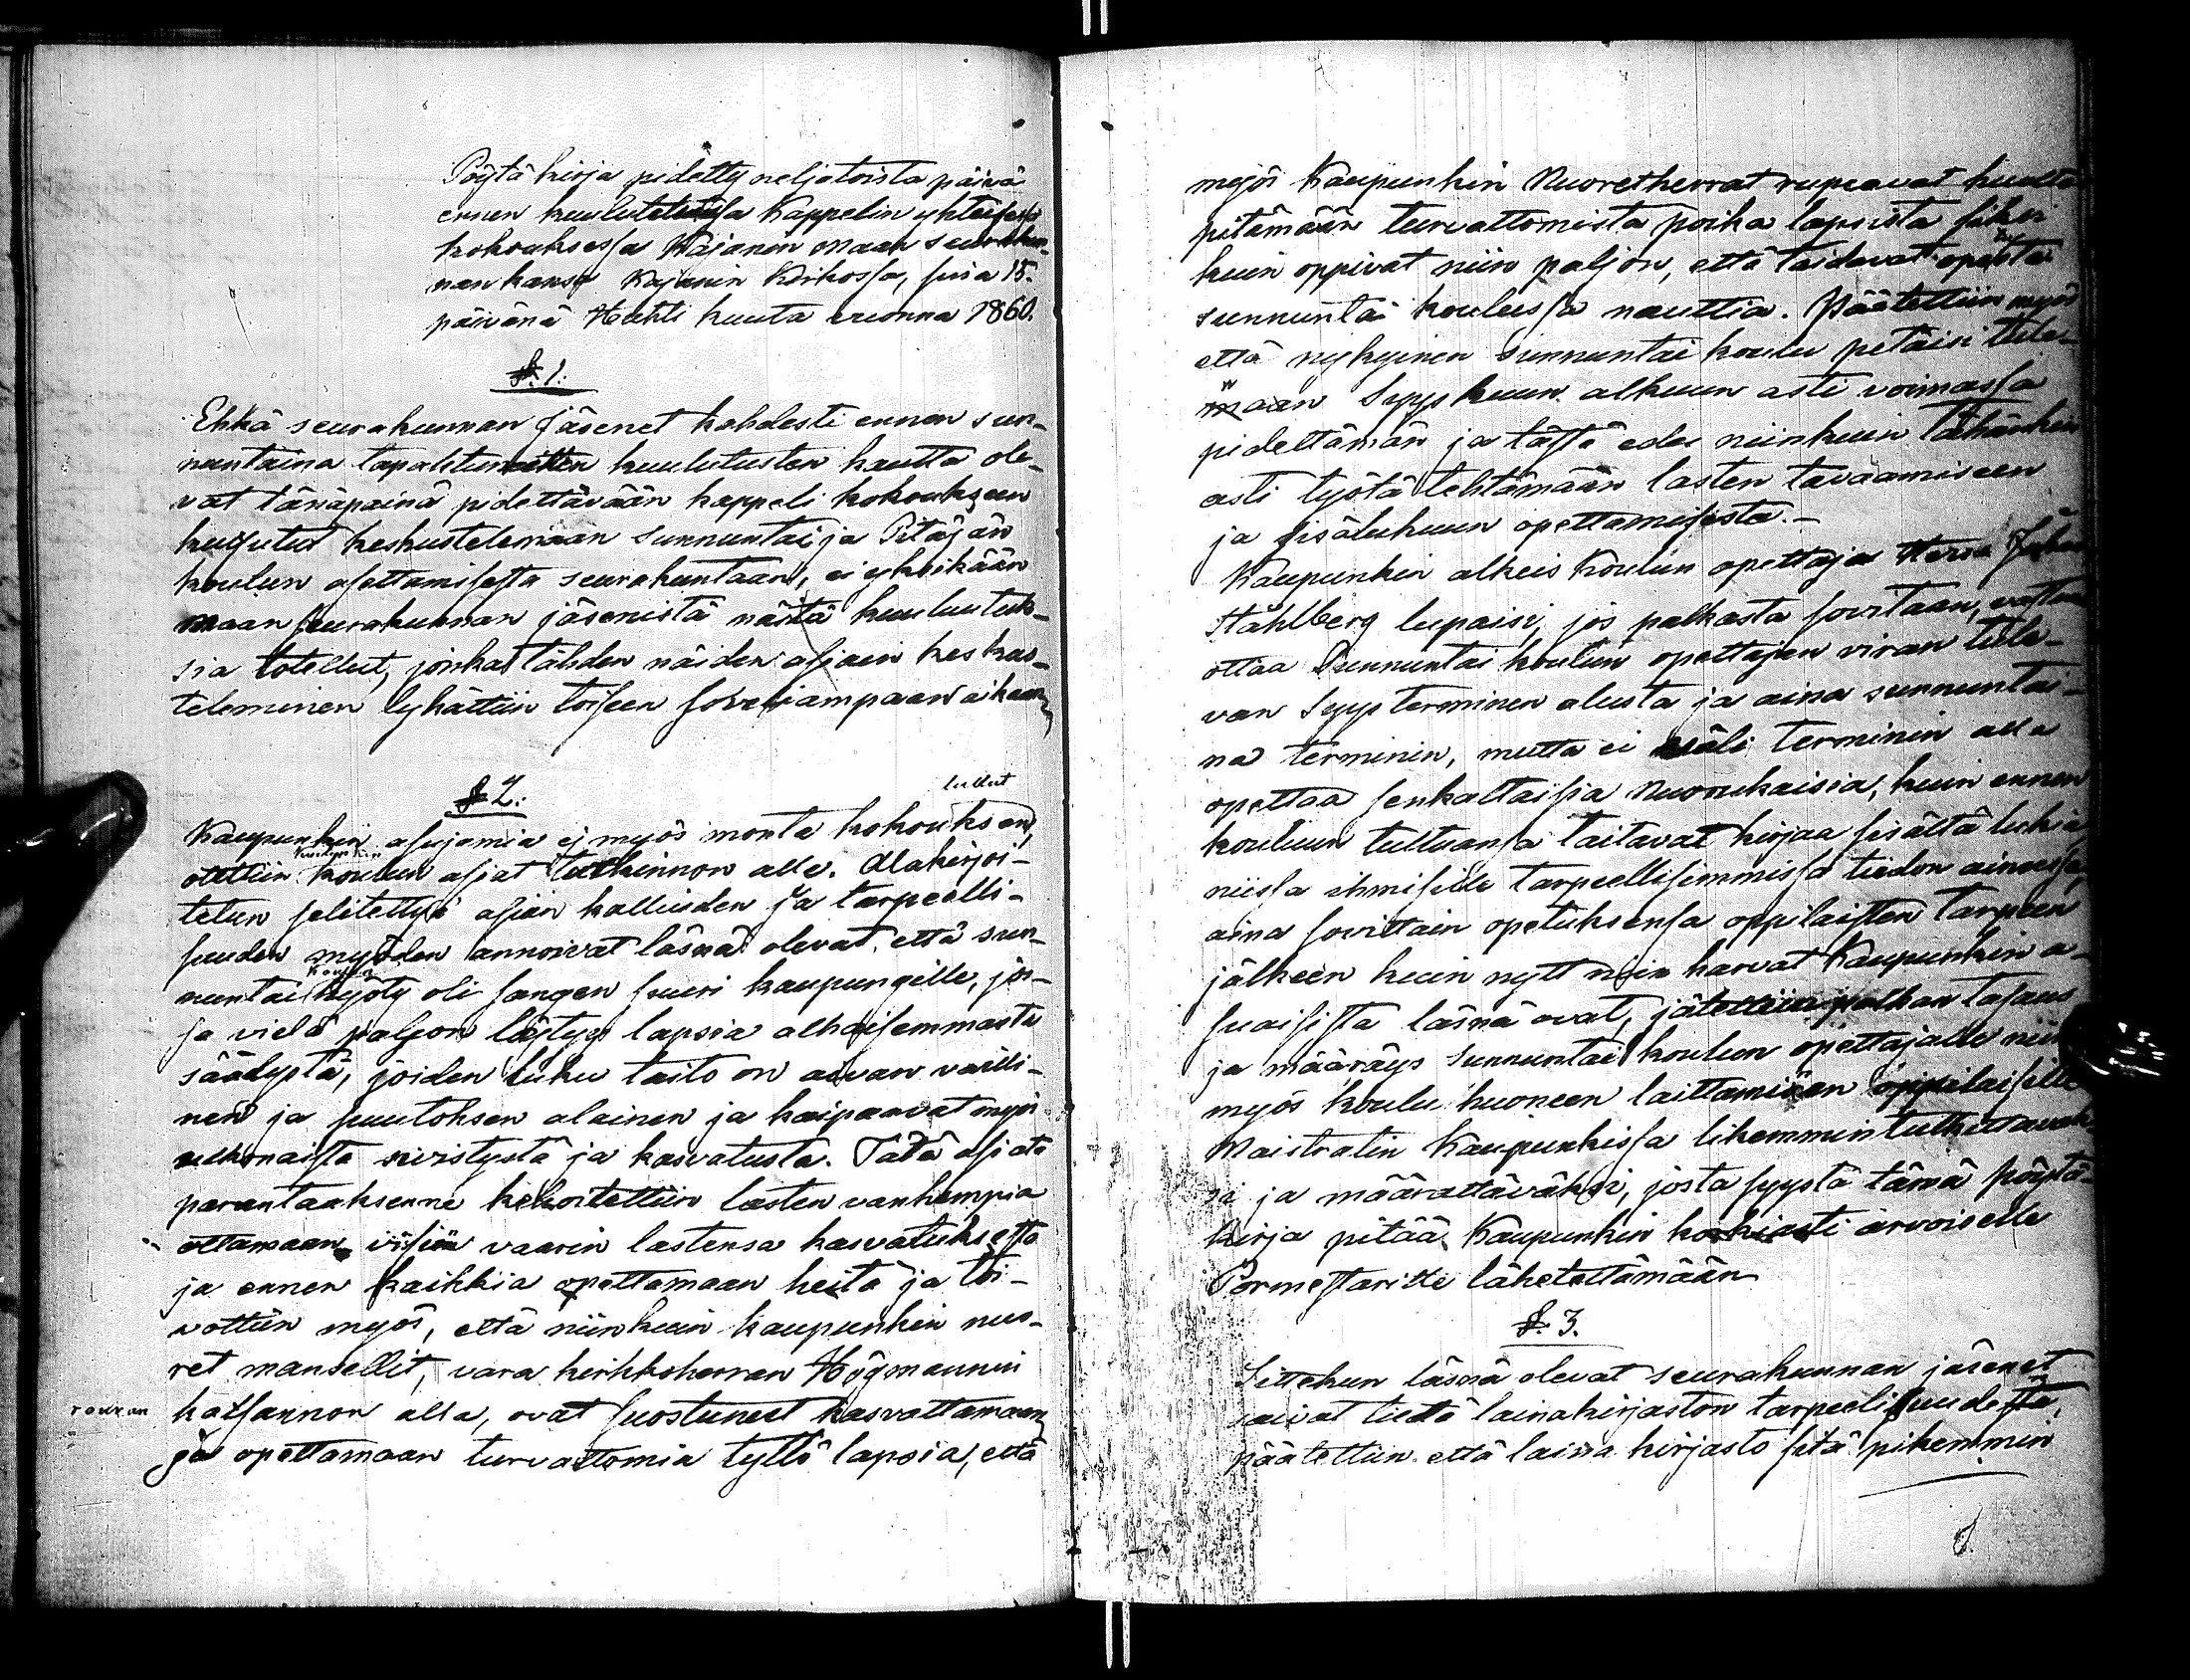 Pöytäkirja pidetty neljätoista päivä
ennen kuulutetussa Kappelin yhteisessä
kokouksessa Kajanin maan seurakun-
nan kansa Kajanin Kirkossa, sinä 15.
päivänä Huhti kuuta vuonna 1860.
§. 1.
Ehkä seurakunnan Jäsenet kahdesti ennen sun-
nuntaina tapahtuneitten kuulutusten kautta ole-
vat tänäpäinä pidettävään kappeli kokoukseen
kutsutut keskustelemaan sunnuntai ja Pitäjän
koulun asettamisesta seurakuntaan, ei yksikään
maan seurakunnan jäsenistä näitä kuuluutuk-
sia totellut, jonka tähden näiden asjain keskus-
teleminen lykättiin toiseen soveliampaan aikaan
§ 2.
tullut
Kaupunkin asujamia ej myös monta kokouksen,
otettiin koulun asiat tutkinnon alle. Allakirjoi-
tetun selitettyä asian kalliuden ja tarpeelli-
suuden myöden annoivat läsnä olevat, että sun-
koulun
nuntai hyöty oli sangen suuri kaupungille, jos-
sa vielä paljon löytyy lapsia alhaisemmasta
säädystä, joiden luku taito on aivan vailli-
nen ja puutoksen alainen ja kaipaavat myös
ulkonaista sivistystä ja kasvatusta. Tätä asiata
parantaaksenne kehoitettiin lasten vanhempia
ottamaan visiin vaarin lastensa kasvatuksesta
ja ennen kaikkia opettamaan heitä ja toi-
vottiin myös, että niinkuin kaupunkin nuo-
ret mansellit, vara kirkkoherran Högmannin
rouvan katsannon alla, ovat suostuneet kasvattamaan
ja opettamaan turvattomia tyttö lapsia, että
myös Kaupunkin Nuoretherrat rupeavat huolta
pitämään turvattomista poika lapsista siksi
kuin oppivat niin paljon, että taidavat opista
sunnuntai koulussa nauttia. Päätettiin myös
että nykyinen sunnuntai koulu petäisi tule-
maan Syys kuun alkuun asti voimassa
pidettämän ja tästä edes niinkuin tähänkin
asti työtä tehtämään lasten tavaamiseen
ja sisälukuun opettamisesta.-
Kaupunkin alkeis Koulun opettaja Herra
Ståhlberg lupaisi, jos palkasta sovitaan, vastaan
ottaa Sunnuntai koulun opettajan viran tule-
van Syys terminen alusta ja aina sunnuntai-
na terminin, mutta ei väli terminin alla
opettaa senkaltaisia Nuorukaisia, kuin ennen
kouluun tultuansa taitavat kirjaa sisältä lukia
niissa ihmisille tarpeellisimmissa tiedon aineissa,
aina sovittain opetuksensa oppilaisten tarpeen
jälkeen kuin nytt niin harvat Kaupunkin a-
suaisista läsnä ovat, jätettiin palkan tasaus
ja määräys Sunnuntai koulun opettajalle niin
myös koulu huoneen laittamisen oppilaisille
Maistratin Kaupunkissa likemmin tutkittavak-
si ja määrättäväksi, josta syystä tämä pöytä-
kirja pitää Kaupunkin korkiasti arvoiselle
Pormestarille lähetettämään
§. 3.
Sittekun läsnä olevat seurakunnan jäsenet
saivat tietä lainakirjaston tarpeelisuudesta,
päätettiin että laina kirjasto sitä pikemmin